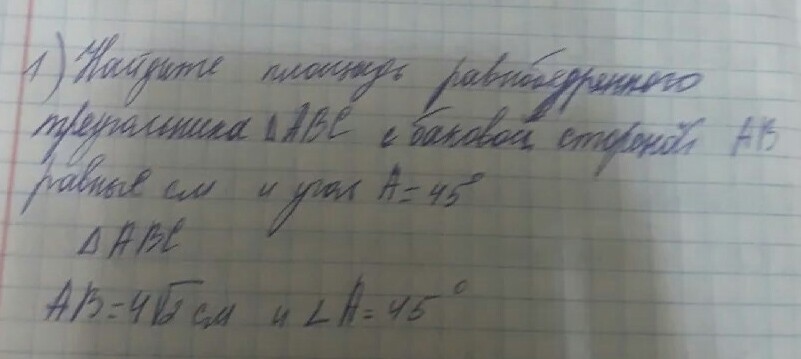 1) Найдите площадь равнобедренного
треугольника △ABC с баковой стороной AB
равные см и угол A = 45°
△ ABC
AB = 4√2 см и ∠A = 45°